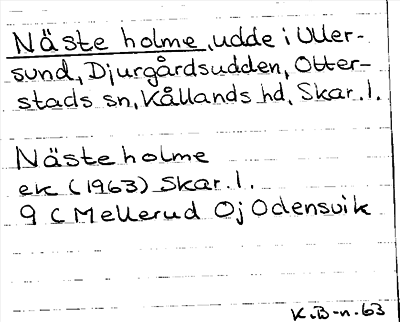 Näste holme, udde i Uller-
sund, Djurgårdsudden, Otter-
stads sn, Kållands hd, Skar. l.
Näste holme
ek (1963) Skar. l.
9 C Mellerud Oj Odensvik
K. B-n. 63